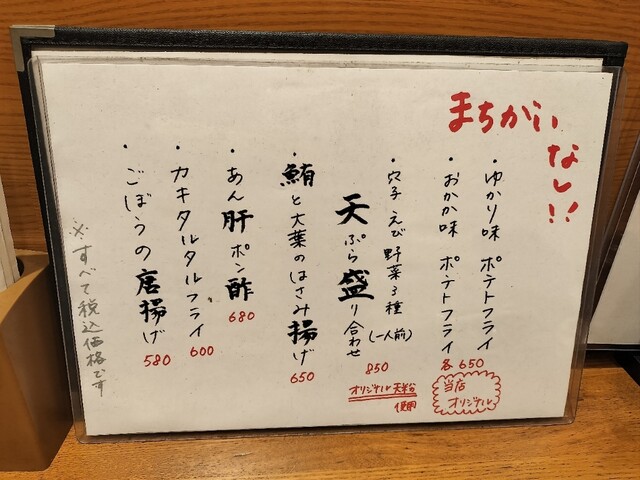 まちがい
なし!!
・ゆかり味 ポテトフライ
・おかか味 ポテトフライ
各650
当店
オリジナル
・穴子 えび 野菜3種
天ぷら盛り合わせ
(一人前)
850
オリジナル天粉
使用
・鮪と大葉のはさみ揚げ
650
・あん肝ポン酢
680
・カキタルタルフライ
600
・ごぼうの唐揚げ
580
※すべて税込価格です